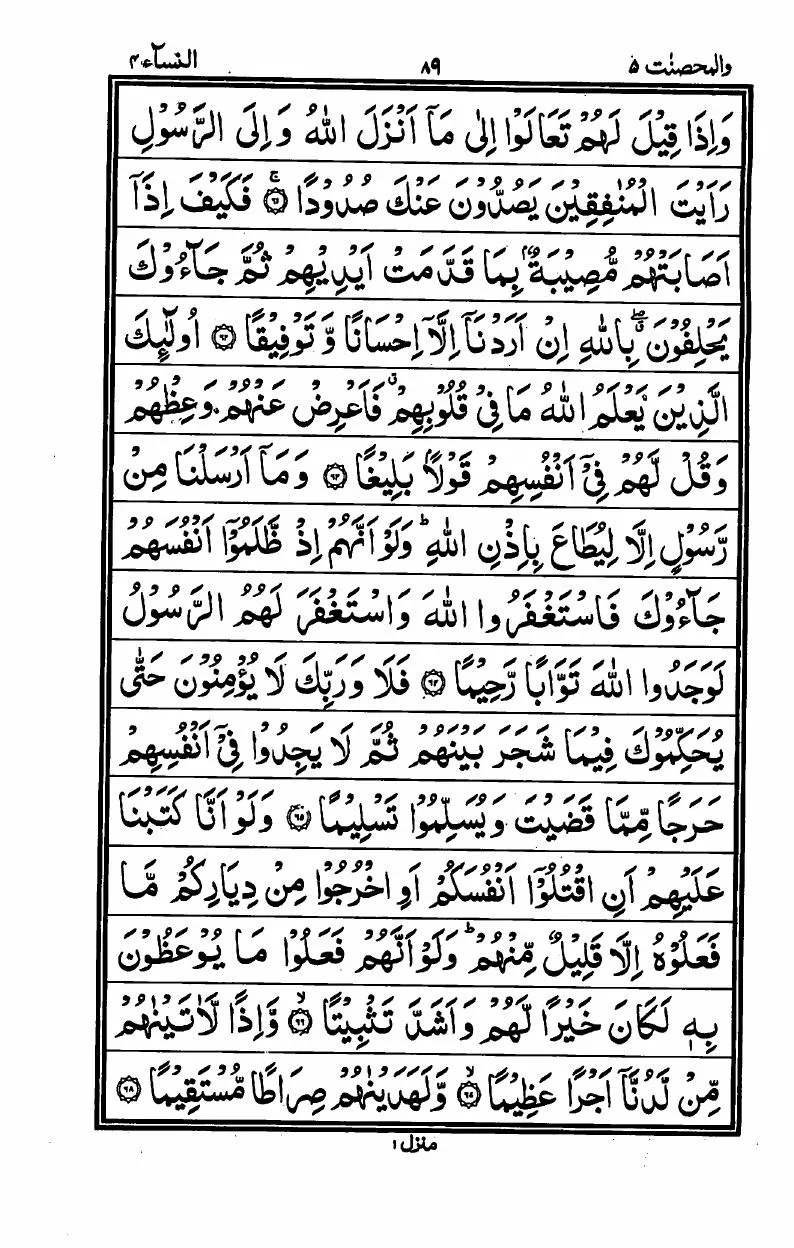 والمحصنٰت ۵ ۸۹ النسآء ۴
وَاِذَا قِيْلَ لَهُمْ تَعَالَوْا اِلٰى مَآ اَنْزَلَ اللّٰهُ وَاِلَى الرَّسُوْلِ
رَاَيْتَ الْمُنٰفِقِيْنَ يَصُدُّوْنَ عَنْكَ صُدُوْدًا ۚ۶۱ فَكَيْفَ اِذَآ
اَصَابَتْهُمْ مُّصِيْبَةٌۢ بِمَا قَدَّمَتْ اَيْدِيْهِمْ ثُمَّ جَآءُوْكَ
يَحْلِفُوْنَ ۖۗ بِاللّٰهِ اِنْ اَرَدْنَآ اِلَّآ اِحْسَانًا وَّتَوْفِيْقًا ۶۲ اُولٰٓئِكَ
الَّذِيْنَ يَعْلَمُ اللّٰهُ مَا فِيْ قُلُوْبِهِمْ ۗ فَاَعْرِضْ عَنْهُمْ وَعِظْهُمْ
وَقُلْ لَّهُمْ فِيْٓ اَنْفُسِهِمْ قَوْلًاۢ بَلِيْغًا ۶۳ وَمَآ اَرْسَلْنَا مِنْ
رَّسُوْلٍ اِلَّا لِيُطَاعَ بِاِذْنِ اللّٰهِ ؕ وَلَوْ اَنَّهُمْ اِذْ ظَّلَمُوْٓا اَنْفُسَهُمْ
جَآءُوْكَ فَاسْتَغْفَرُوا اللّٰهَ وَاسْتَغْفَرَ لَهُمُ الرَّسُوْلُ
لَوَجَدُوا اللّٰهَ تَوَّابًا رَّحِيْمًا ۶۴ فَلَا وَرَبِّكَ لَا يُؤْمِنُوْنَ حَتّٰى
يُحَكِّمُوْكَ فِيْمَا شَجَرَ بَيْنَهُمْ ثُمَّ لَا يَجِدُوْا فِيْٓ اَنْفُسِهِمْ
حَرَجًا مِّمَّا قَضَيْتَ وَيُسَلِّمُوْا تَسْلِيْمًا ۶۵ وَلَوْ اَنَّا كَتَبْنَا
عَلَيْهِمْ اَنِ اقْتُلُوْٓا اَنْفُسَكُمْ اَوِ اخْرُجُوْا مِنْ دِيَارِكُمْ مَّا
فَعَلُوْهُ اِلَّا قَلِيْلٌ مِّنْهُمْ ؕ وَلَوْ اَنَّهُمْ فَعَلُوْا مَا يُوْعَظُوْنَ
بِهٖ لَكَانَ خَيْرًا لَّهُمْ وَاَشَدَّ تَثْبِيْتًا ۙ۶۶ وَّاِذًا لَّاٰتَيْنٰهُمْ
مِّنْ لَّدُنَّآ اَجْرًا عَظِيْمًا ۙ۶۷ وَّلَهَدَيْنٰهُمْ صِرَاطًا مُّسْتَقِيْمًا ۶۸
منزل ۱